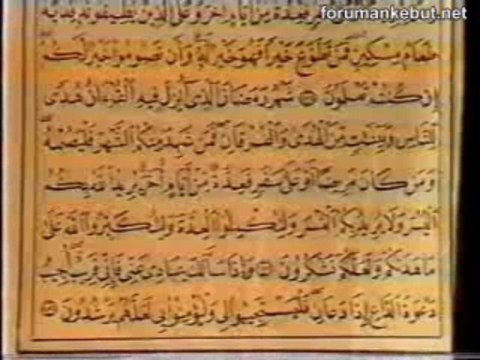 forumankebut.net
مريضا أو على سفر فعدة من أيام أخر وعلى الذين يطيقونه فدية
طعام مسكين فمن تطوع خيرا فهو خير له وأن تصوموا خير لكم
إن كنتم تعلمون شهر رمضان الذي أنزل فيه القرءان هدى
للناس وبينت من الهدى والفرقان فمن شهد منكم الشهر فليصمه
ومن كان مريضا أو على سفر فعدة من أيام أخر يريد الله بكم
اليسر ولا يريد بكم العسر ولتكملوا العدة ولتكبروا الله على
ما هدىكم ولعلكم تشكرون وإذا سألك عبادي عني فإني قريب أجيب
دعوة الداع إذا دعان فليستجيبوا لي وليؤمنوا بي لعلهم يرشدون